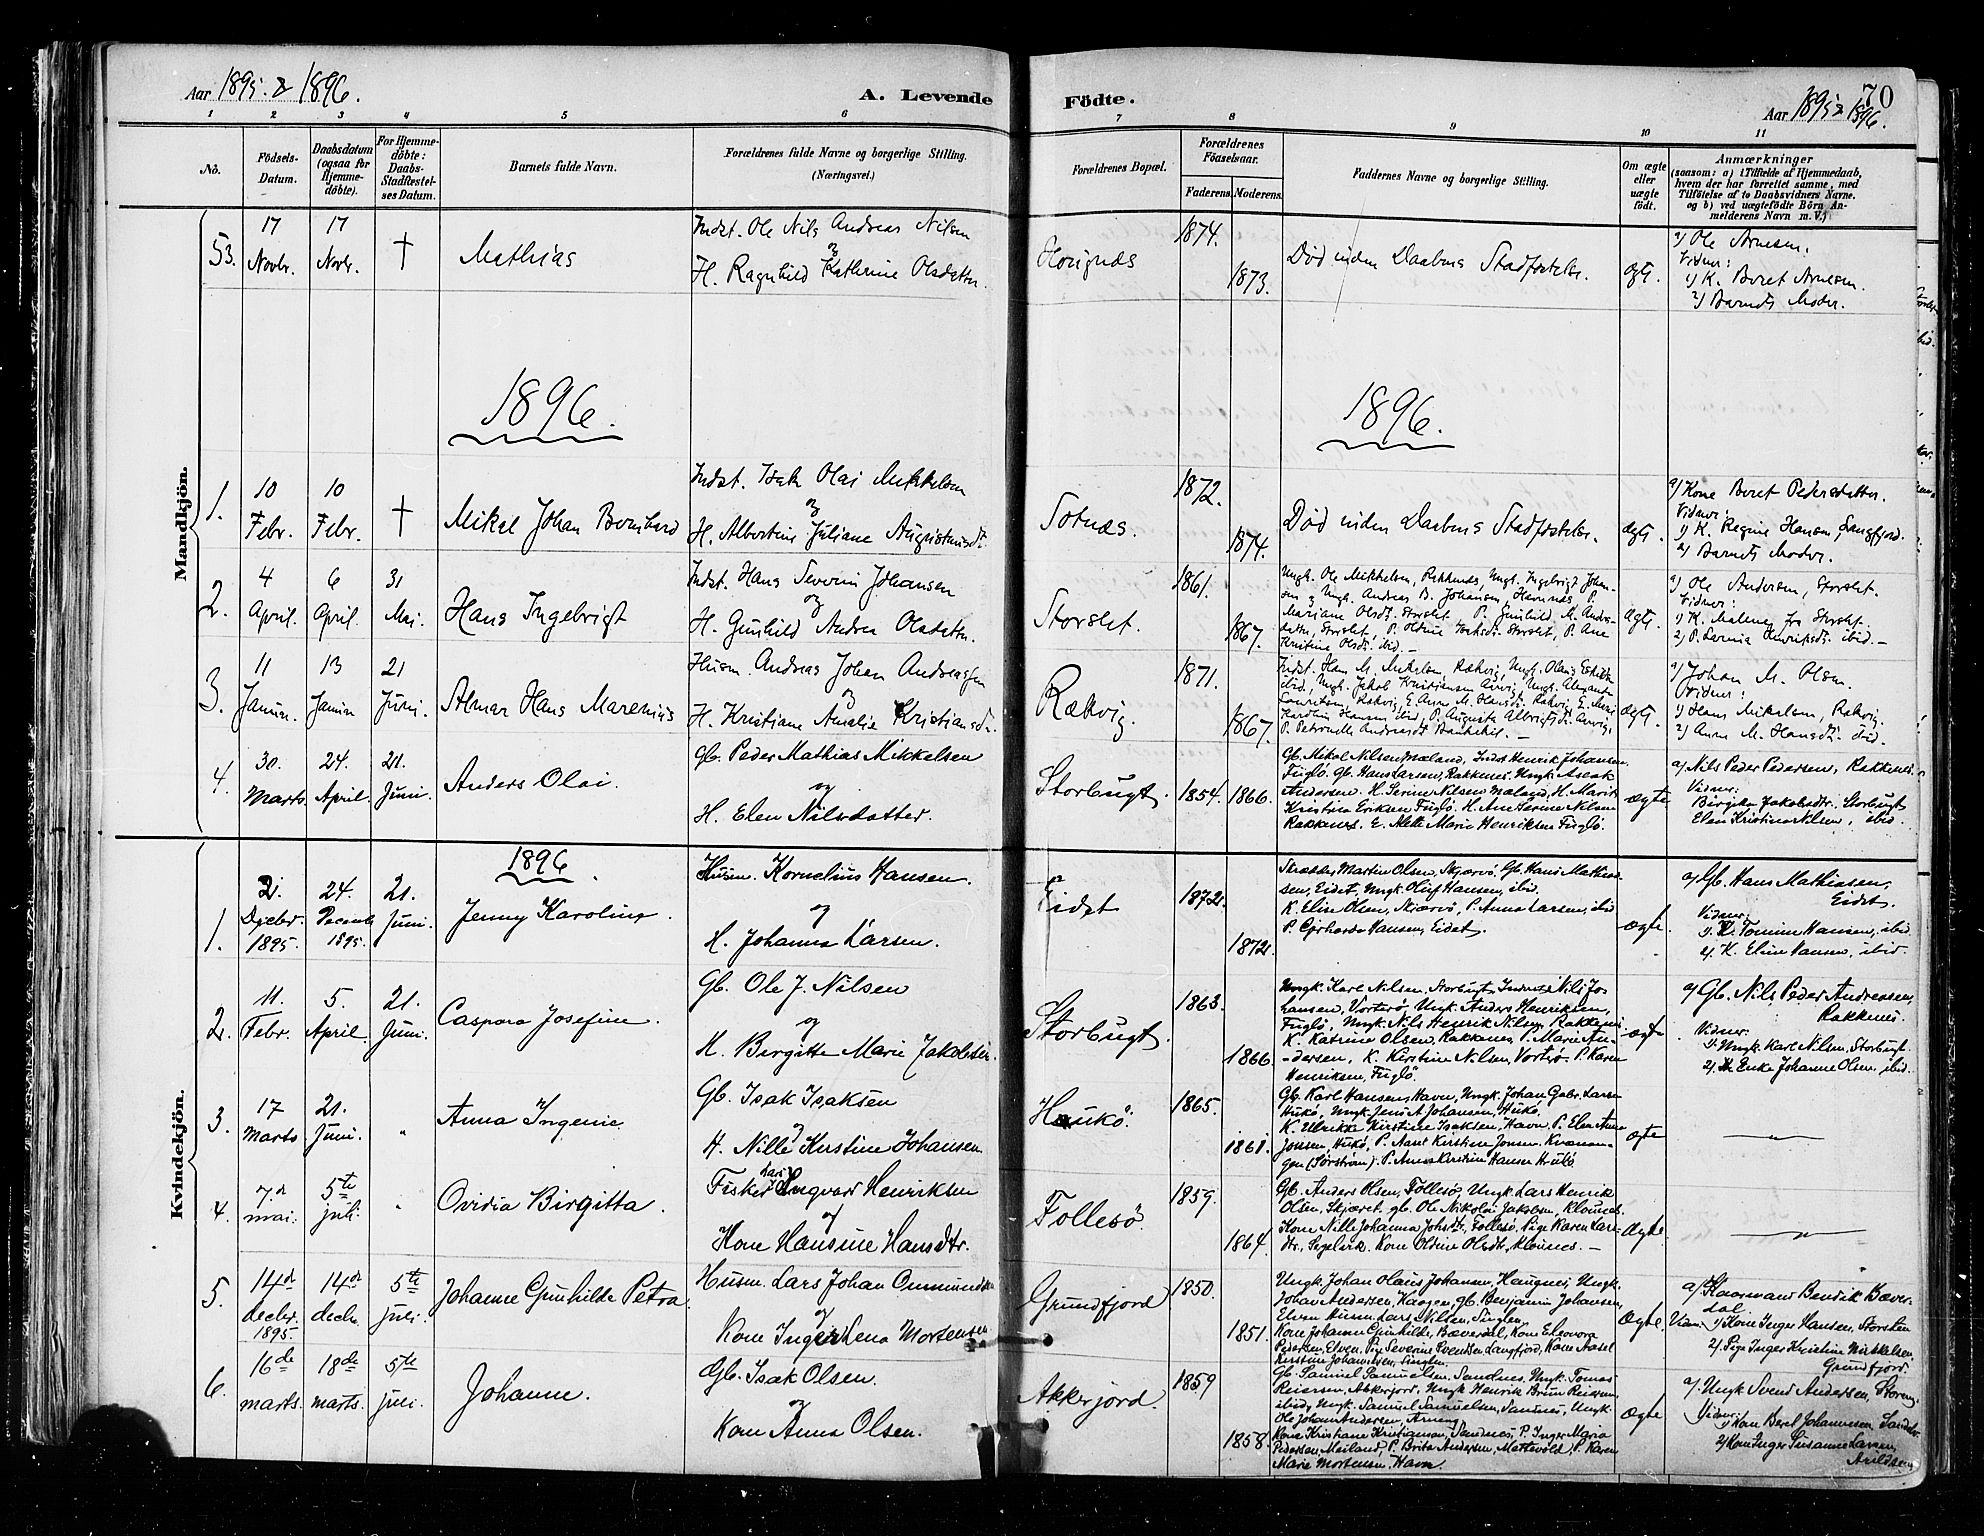 Aar 1895 & 1896.
A. Levende
Födte.
Aar 1895 & 1896.
70
1 2 3 4 5 6 7 8 9 10 11
No.
Födsels-Datum.
Daabsdatum (ogsaa for Hjemmedöbte).
For Hjemmedöbte: Daabs-Stadfæstelses Datum.
Barnets fulde Navn.
Forældrenes fulde Navne og borgerlige Stilling. (Næringsvei.)
Forældrenes Bopæl.
Forældrenes Föaselsaar.
Faderens. Moderens.
Faddernes Navne og borgerlige Stilling.
Om ægte eller uægte födt.
Anmærkninger
(saasom: a) i Tilfælde af Hjemmedaab,
hvem der har forrettet samme, med
Tilföielse af to Daabsvidners Navne.
og b) ved uægtefödte Börn An-
melderens Navn m. V.)
Mandkjön.
53. 17 Novbr. 17 Novbr. † Mathias
Indst. Ole Nils Andreas Nilsen
og
H. Ragnhild Kathrine Olsdatter
1874.
1873.
Död inden Daabens Stadfæstelse.
ægt.
a) Ole Arnesen.
Vidner:
1) K. Beret Arnesen.
2) Barnets Moder.
1896.
1896.
1. 10 Febr. 10 Febr. † Mikal Johan Bernhard
Indst. Isak Olai Mikkelsen
og
H. Albertine Juliane Augustinusdt.
Sotnæs.
1872.
1874.
Död inden Daabens Stadfæstelse.
ægt.
a) Kone Beret Pedersdatter.
Vidner:
1) K. Regine Hansen, Langfjord.
2) Barnets Moder.
2. 4 April. 6 April. 31 Mai. Hans Ingebrigt
Indst. Hans Severin Johansen
og
H. Gunhild Andrea Olsdatter
Storslet.
1861.
1867.
Ungk. Ole Mikkelsen, Rakkenes, Ungk. Ingebrigt Johan-
sen og Ungk. Andreas B. Johansen, Havnnæs, P.
Mariane Olsdt. Storslet
Kristine Olsdt. ibid. —
Ægt.
a) Ole Andersen, Storslet.
Vidner:
1) K. Malene fra Storslet.
2) P. Lovisa Henriksdt. ibid. —
3. 11 Januar. 13 Januar 21 Juni. Almar Hans Marenius
Husm. Andreas Johan Andreassen
og
H. Kristiane Amalie Kristiansdt.
Rækvig
1871.
1867.
ægt.
a) Johan M. Olsen.
Vidner:
1) Hans Mikelsen, Rækvig.
2) Anne M. Hansdt. ibid.
4. 30. Marts 24. April. 21. Juni. Anders Olai
Gb. Peder Mathias Mikkelsen
og
H. Elen Nilsdatter.
Storbugt.
1854. 1866.
Gb. Mikal Nilsen Mæland, Indst Henrik Johansen
Fuglö. Gb. Hans Larsen, Rakkenes. Ungk. Aseak
Andersen. H. Serine Nilsen Mæland. H. Marit
Kristina Eriksen Fuglö. H. Ane Serine Nilsen
Rakkenes. E. Alette Marie Henriksen Fuglö.
ægte
a/ Nils Peder Pedersen, Rakkenes.
Vidner:
Birgitte Jakobsdtr. Storbugt
Elen Kristine Nilsen, ibid.
Kvindekjön.
1896.
1. 2. Decbr. 1895. 24. Decemb 1895. 21. Juni. Jenny Karoline.
Husm. Kornelius Hansen.
og
H. Johanna Larsen.
Eidet
1872.
1872.
Skrædder Martin Olsen, Skjærvö. Gb. Hans Mathias-
sen, Eidet, Ungk. Oluf Hansen, ibid.
K. Elise Olsen, Skjærvö, P. Anna Larsen, ibid
P. Gjerharda Hansen, Eidet.
ægte.
a/ Gb. Hans Mathiasen,
Eidet.
Vidner:
1. K. Tomine Hansen, ibid.
2. K. Elise Hansen, ibid.
2. 11. Febr. 5. April. 21. Juni. Caspara Josefine.
Gb. Ole J. Nilsen
og
H. Birgitte Marie Jakobsen.
Storbugt.
1863.
1866
Ungk. Karl Nilsen, Storbugt, Indst. Nils Jo-
hansen, Vorterö. Ungk. Anders Henriksen,
Fuglö, Ungk. Nils Henrik Nilsen, Rakkenes
K. Katrine Olsen, Rakkenes, P. Marie An-
dersen, K. Kirstine Nilsen, Vorterö. P. Karen
Henriksen, Fuglö.
ægte
a/ Gb. Nils Peder Andreasen,
Rakkenes.
Vidner:
1. Ungk. Karl Nilsen, Storbugt.
2/ K. Enke Johanne Olsen ibid.
3. 17 Marts 21. Juni. " Anna Ingenie.
Gb. Isak Isaksen
og
H. Nille Kirstine Johansen.
Haukö.
1865.
1861.
Gb. Karl Hansen, Havn, Ungk. Johan Gabr. Larsen
Hukö, Ungk. Jens A Johansen, Hukö,
K. Ulrikke Kirstine Isaksen, Havn, P. Elen Anne
Jonsen, Hukö, P. Aaset Kirstine Jonsen. Kvænan-
gen (Sörström). P. Anne Kirstine Hansen Hukö
ægte
4. 7d mai. 5te juli. " Ovidia Birgitta.
Fisker Ingvart Henriksen
og
Kone Hansine Hansdtr.
Follesö.
1859.
1864.
Gb. Anders Olsen, Follesö, Ungk. Lars Henrik
Olsen, Skjæret, gb. Ole Nikolai Jakobsen, Klounes.
Kone Nille Johanna Johsdtr., Follesö, Pige Karen Lars-
dtr., Segelvik. Kone Oldine Olsdtr, Klounes. —
Ægte.
5. 14de decbr. 1895. 14de decbr. 5te juli. Johanne Gunhilde Petra
Husm. Lars Johan Ommundsen
og
Kone Inger Lena Mortensen
Grundfjord
1850.
1851.
Ungk. Johan Olaus Johansen, Haugnes, Ungk.
Johan Andersen, Kaagen, gb. Benjamin Johansen,
Elven, Husm. Lars Nilsen, Singlen.
Kone Johanne Gunhilde, Bæverdal, Kone Eleonora
Pedersen, Elven, Pige Severine Svendsen Langfjord, Kone Aasel
Kirstine Johannesen, Singlen.
Ægte.
a/ Kaarmand Bendik Bæver-
dal.
Vidn. 1) Kone Inger Hansen, Storsten
2/ Pige Inger Kristine Mikkelsen,
Grundfjord.
6. 16de marts. 18de marts. 5te juli. Johanne.
Gb. Isak Olsen.
og
Kone Anna Olsen.
Akkerjord.
1859
1858.
Gb. Samuel Samuelsen, Sandnes, Ungk. Tomas
Reiersen, Akkerjord, Ungk Henrik Brun Reiersen,
ibid, Ungk. Samuel Samuelsen, Sandnes, Ungk.
Ole Johan Andersen,
Kone Kristiane Kristiansen, Sandnes, P. Inger Maria
Pedersen, Meiland, P. Brita Andersen, Mettevold, P. Karen
Marie Mortensen, Havn.
Ægte
a/. Ungk Svend Andersen, Storeng
Vidner:
1/ Kone Beret Johannesen Sandnes
2/ Kone Inger Susanne Larsen,